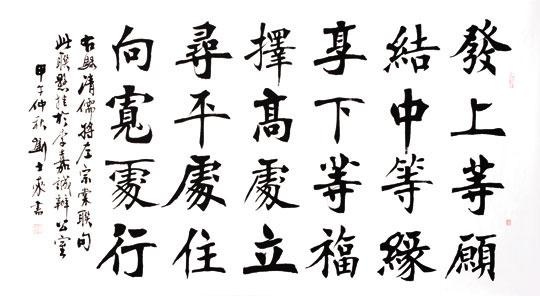 發上等願
結中等緣
享下等福
擇高處立
尋平處住
向寬處行
右錄清儒將左宗棠聯句
此聯懸挂於李嘉誠辦公室
甲午仲秋 書